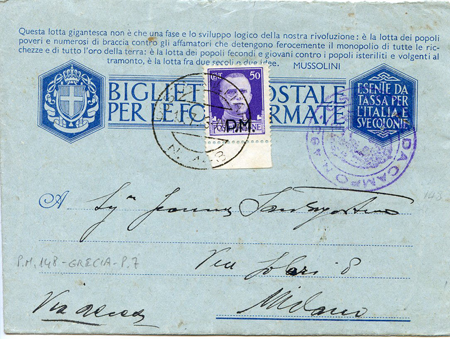 Questa lotta gigantesca non è che una fase e lo sviluppo logico della nostra rivoluzione: è la lotta dei popoli
poveri e numerosi di braccia contro gli affamatori che detengono ferocemente il monopolio di tutte le ric-
chezze e di tutto l'oro della terra: è la lotta dei popoli fecondi e giovani contro i popoli isteriliti e volgenti al
tramonto, è la lotta fra due secoli e due idee.
MUSSOLINI
BIGLIETTO POSTALE
PER LE FORZE ARMATE
ESENTE DA
TASSA PER
L'ITALIA E
SVE COLONIE
50
P.M.
A
Milano
P.M. 148-GRECIA-P.7
Via aerea